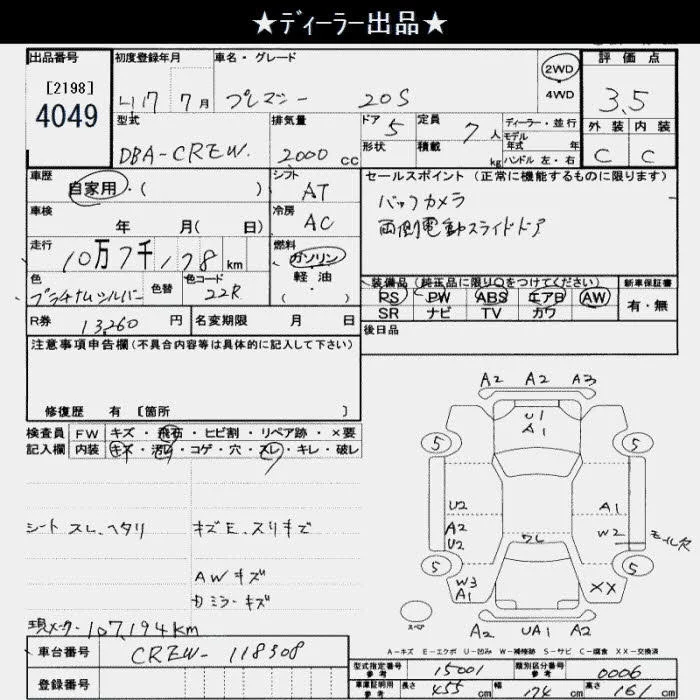 ★ディーラー出品★
出品番号 初度登録年月 車名・グレード 2WD 評価点
[2198] 4049 H17 7月 プレマシー 20S 4WD 3.5
型式 排気量 ドア 5 定員 7人 ディーラー・並行 外装 内装
DBA-CREW. 2000cc 形状 積載 kg モデル年式 年 ハンドル 左・右 C C
車歴 自家用・( ) シフト AT セールスポイント(正常に機能するものに限ります)
車検 年 月( 日) 冷房 AC バックカメラ
両側電動スライドドア
走行 10万7千178km 燃料 ガソリン・軽・油・( )
色 プラチナムシルバー 色替 色コード 22R 装備品(純正品に限り○をつけてください) 新車保証書
PS PW ABS エアB AW 有・無
SR ナビ TV カワ
R券 13,260円 名変期限 月 日 後日品
注意事項申告欄(不具合内容等は具体的に記入して下さい)
修復歴 有 [箇所 ]
検査員 FW キズ・飛石・ヒビ割・リペア跡・×要
記入欄 内装 キズ・汚レ・コゲ・穴・スレ・キレ・破レ
シート スレ、ヘタリ キズE、スリキズ
AWキズ
カミラーキズ
現メーター107,194km
A2 A2 A3
U1
A1
5 5
U2 A1
A2 W2 モール欠
U2 ワレ
5 5
W3 XX
A1
スペア A2 UA1 A2
A-キズ E-エクボ U-凹み W-補修跡 S-サビ C-腐食 XX-交換済
車台番号 CREW-118308 型式指定番号 参考 15001 類別区分番号 参考 0006
登録番号 車庫証明用 参考 長さ 455cm 幅 174cm 高さ 161cm